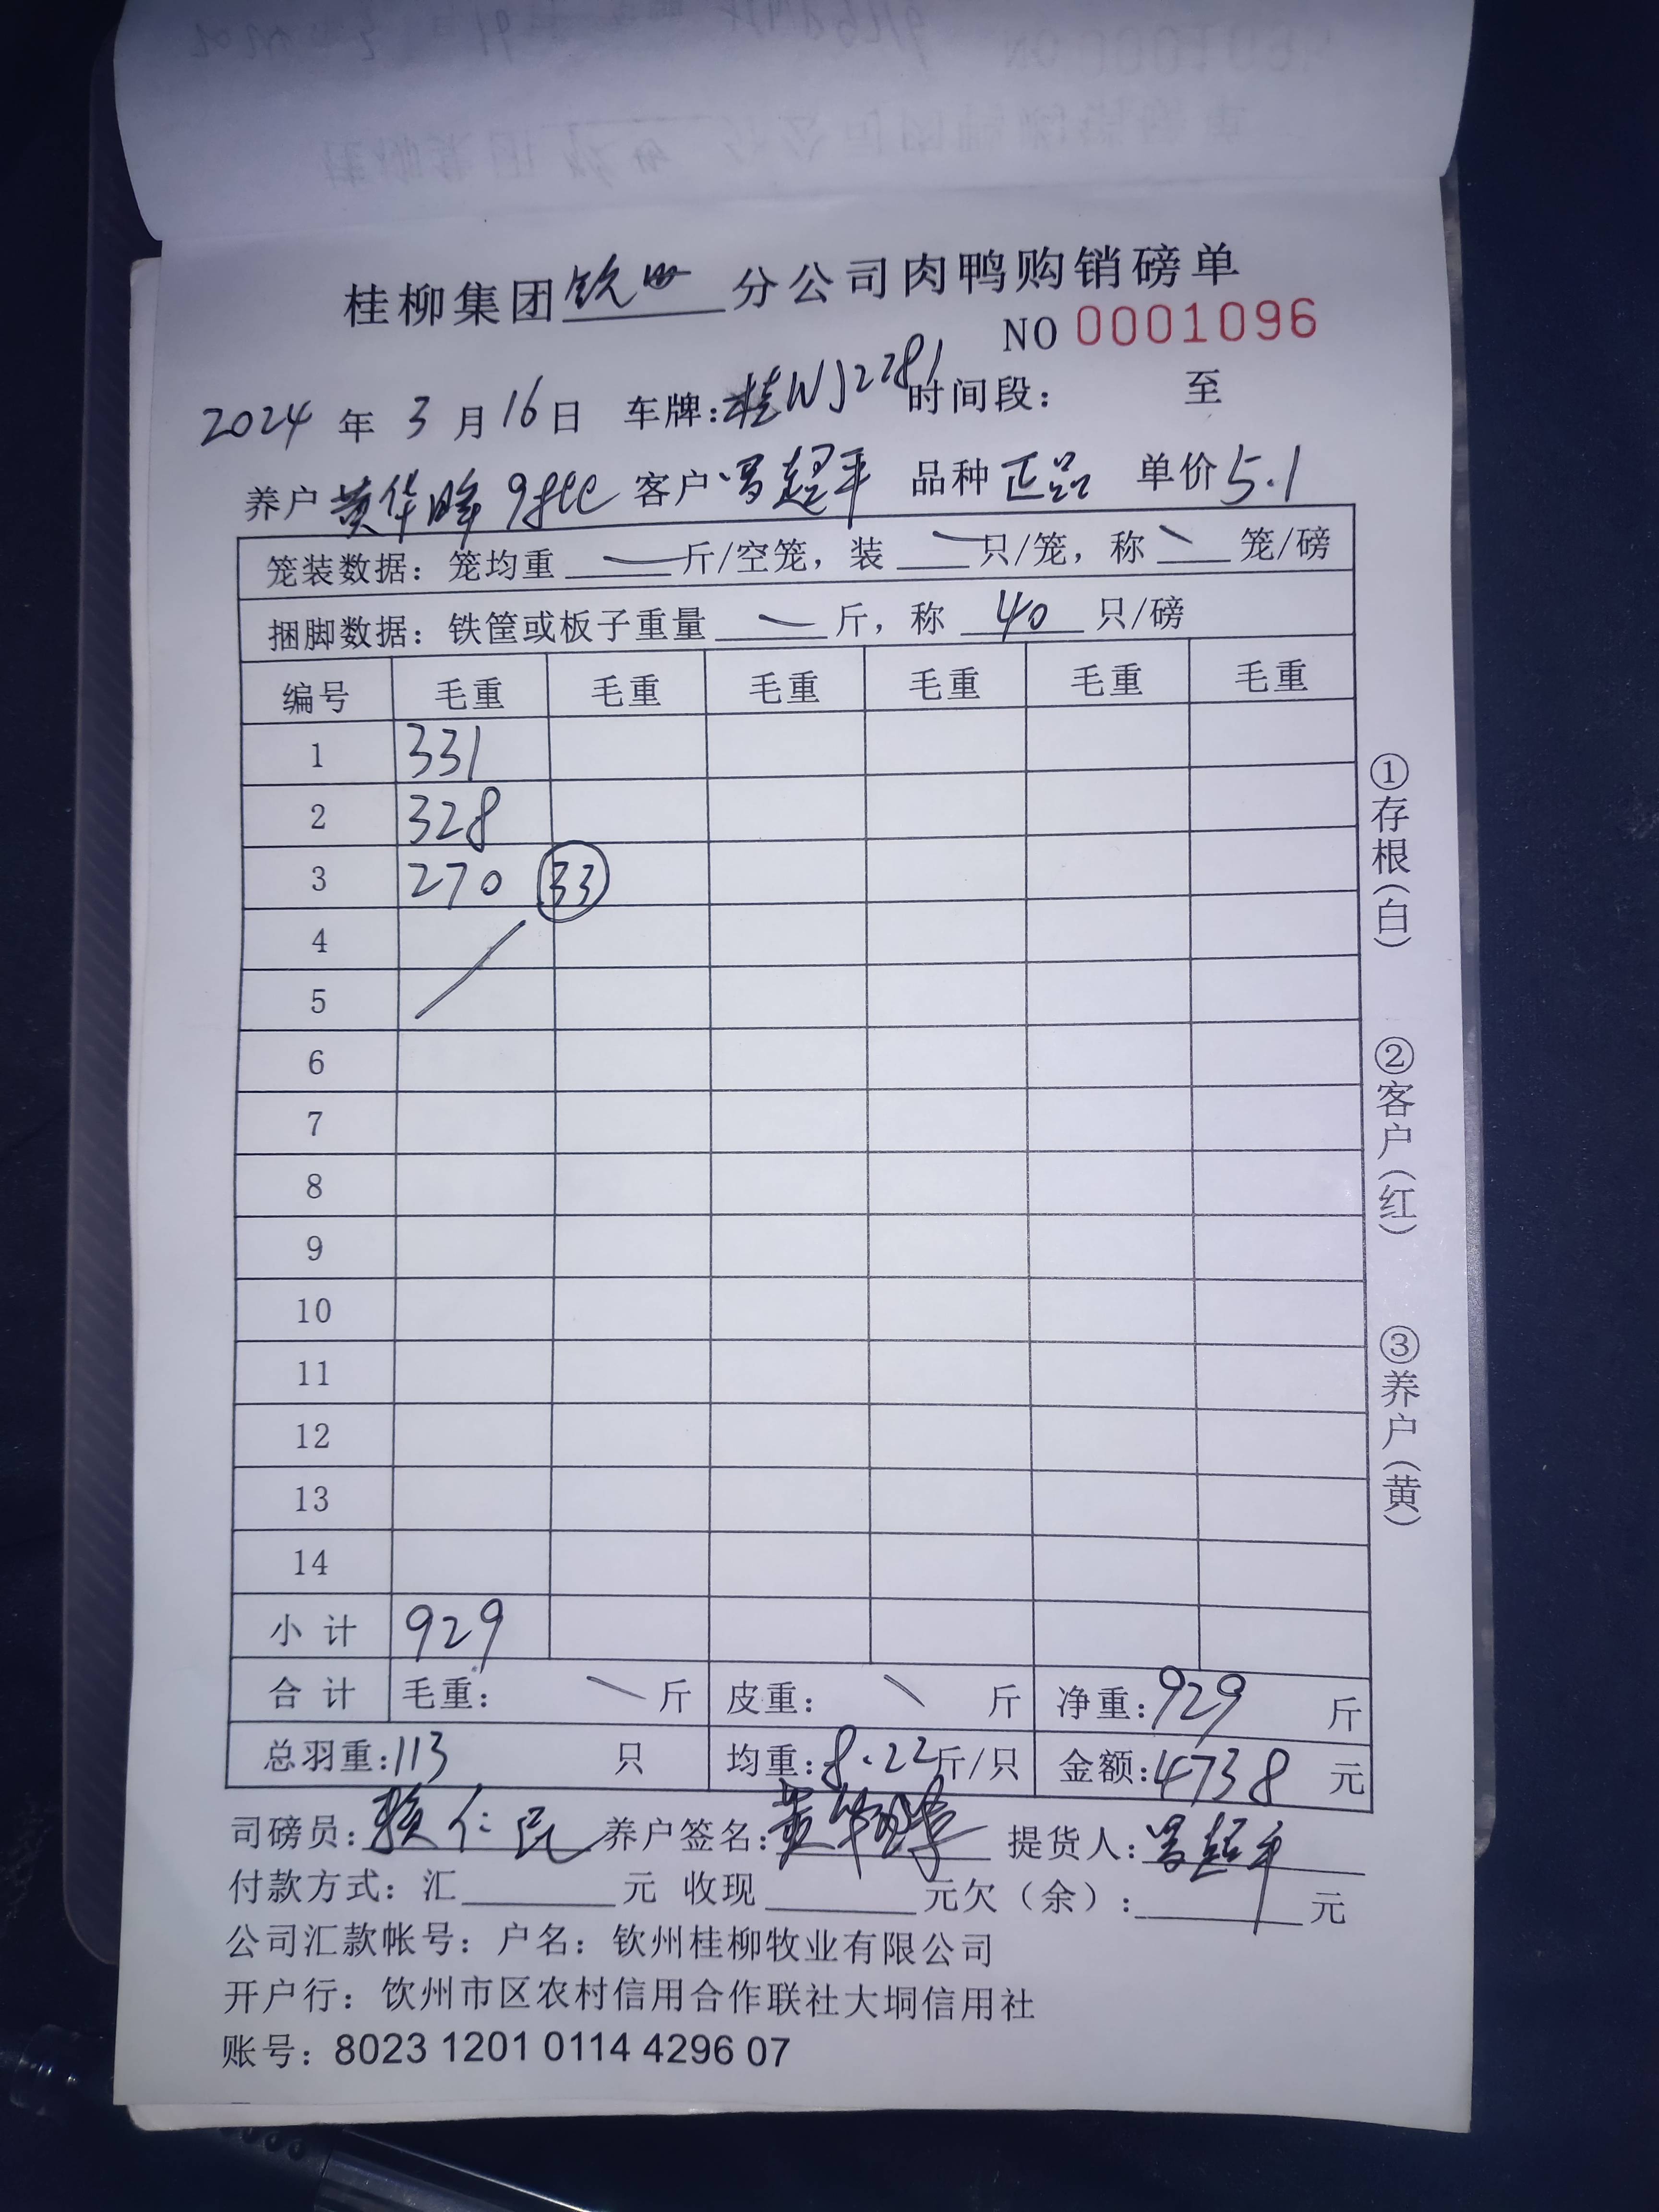 桂柳集团钦州分公司肉鸭购销磅单
NO 0001096
2024年3月16日 车牌:桂WJ2281 时间段: 至
养户 黄华晖 客户 冯超平 品种 正品 单价 5.1
笼装数据: 笼均重 斤/空笼, 装 只/笼, 称 笼/磅
捆脚数据: 铁筐或板子重量 斤, 称 40 只/磅
编号 毛重 毛重 毛重 毛重 毛重 毛重
1 331
2 328
3 270 33
4
5
6
7
8
9
10
11
12
13
14
小计 929
合计 毛重: 斤 皮重: 斤 净重:929 斤
总羽重:113 只 均重:8.22斤/只 金额:4738 元
司磅员:赖仁民 养户签名:黄华晖 提货人:冯超平
付款方式: 汇 元 收现 元欠(余): 元
公司汇款帐号: 户名: 钦州桂柳牧业有限公司
开户行: 钦州市区农村信用合作联社大垌信用社
账号: 8023 1201 0114 4296 07
①存根(白)
②客户(红)
③养户(黄)